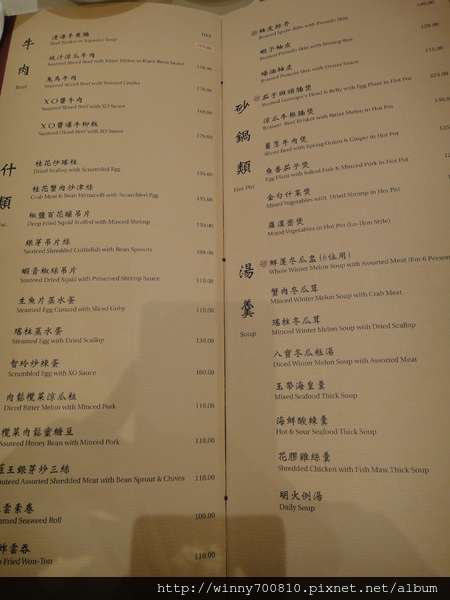 牛肉
Beef
清湯牛爽腩
Beef Brisket in Superior Soup
豉汁涼瓜牛肉
Sautéed Sliced Beef with Bitter Melon in Black Bean Sauce
鬼馬牛肉
Sautéed Sliced Beef with Twisted Cruller
118.00
XO醬牛肉
Sautéed Sliced Beef with XO Sauce
168.00
XO醬爆牛柳粒
Sautéed Diced Beef with XO Sauce
什
類
桂花炒瑤柱
Dried Scallop with Scrambled Egg
135.00
桂花蟹肉炒津絲
Crab Meat & Bean Vermicelli with Scrambled Egg
135.00
椒鹽百花釀吊片
Deep Fried Squid Stuffed with Minced Shrimp
150.00
銀芽吊片絲
Sauteed Shredded Cuttlefish with Bean Sprouts
108.00
蝦膏椒絲吊片
Sauteed Dried Squid with Preserved Shrimp Sauce
110.00
生魚片蒸水蛋
Steamed Egg Custard with Sliced Goby
110.00
瑤柱蒸水蛋
Steamed Egg with Dried Scallop
130.00
智玲炒辣蛋
Scrambled Egg with XO Sauce
100.00
肉鬆欖菜涼瓜粒
Diced Bitter Melon with Minced Pork
118.00
欖菜肉鬆蜜糖豆
Sauteed Honey Bean with Minced Pork
118.00
王銀芽炒三絲
Assorted Shredded Meat with Bean Sprout & Chives
118.00
雲素卷
Seaweed Roll
100.00
雲吞
Fried Won-Ton
110.00
柚皮
with Pomelo Skin
蝦子柚皮
Braised Pomelo Skin with Shrimp Roe
蠔油柚皮
Braised Pomelo Skin with Oyster Sauce
115.00
砂鍋類
Hot Pot
茄子斑頭腩煲
Braised Garoupa's Head & Belly with Egg Plant in Hot Pot
225.00
涼瓜牛根腩煲
Braised Beef Brisket with Bitter Melon in Hot Pot
薑葱牛肉煲
Sliced Beef with Spring Onion & Ginger in Hot Pot
魚香茄子煲
Egg Plant with Salted Fish & Minced Pork in Hot Pot
金勾什菜煲
Mixed Vegetables with Dried Shrimp in Hot Pot
羅漢齋煲
Mixed Vegetables in Hot Pot (Lo-Hon Style)
湯羹
Soup
鮮蓮冬瓜盅 (6位用)
Whole Winter Melon Soup with Assorted Meat (For 6 Person
蟹肉冬瓜茸
Minced Winter Melon Soup with Crab Meat
瑤柱冬瓜茸
Minced Winter Melon Soup with Dried Scallop
八寶冬瓜粒湯
Diced Winter Melon Soup with Assorted Meat
玉帶海皇羹
Mixed Seafood Thick Soup
海鮮酸辣羹
Hot & Sour Seafood Thick Soup
花膠雞絲羹
Shredded Chicken with Fish Maw Thick Soup
明火例湯
Daily Soup
http://winny700810.pixnet.net/album